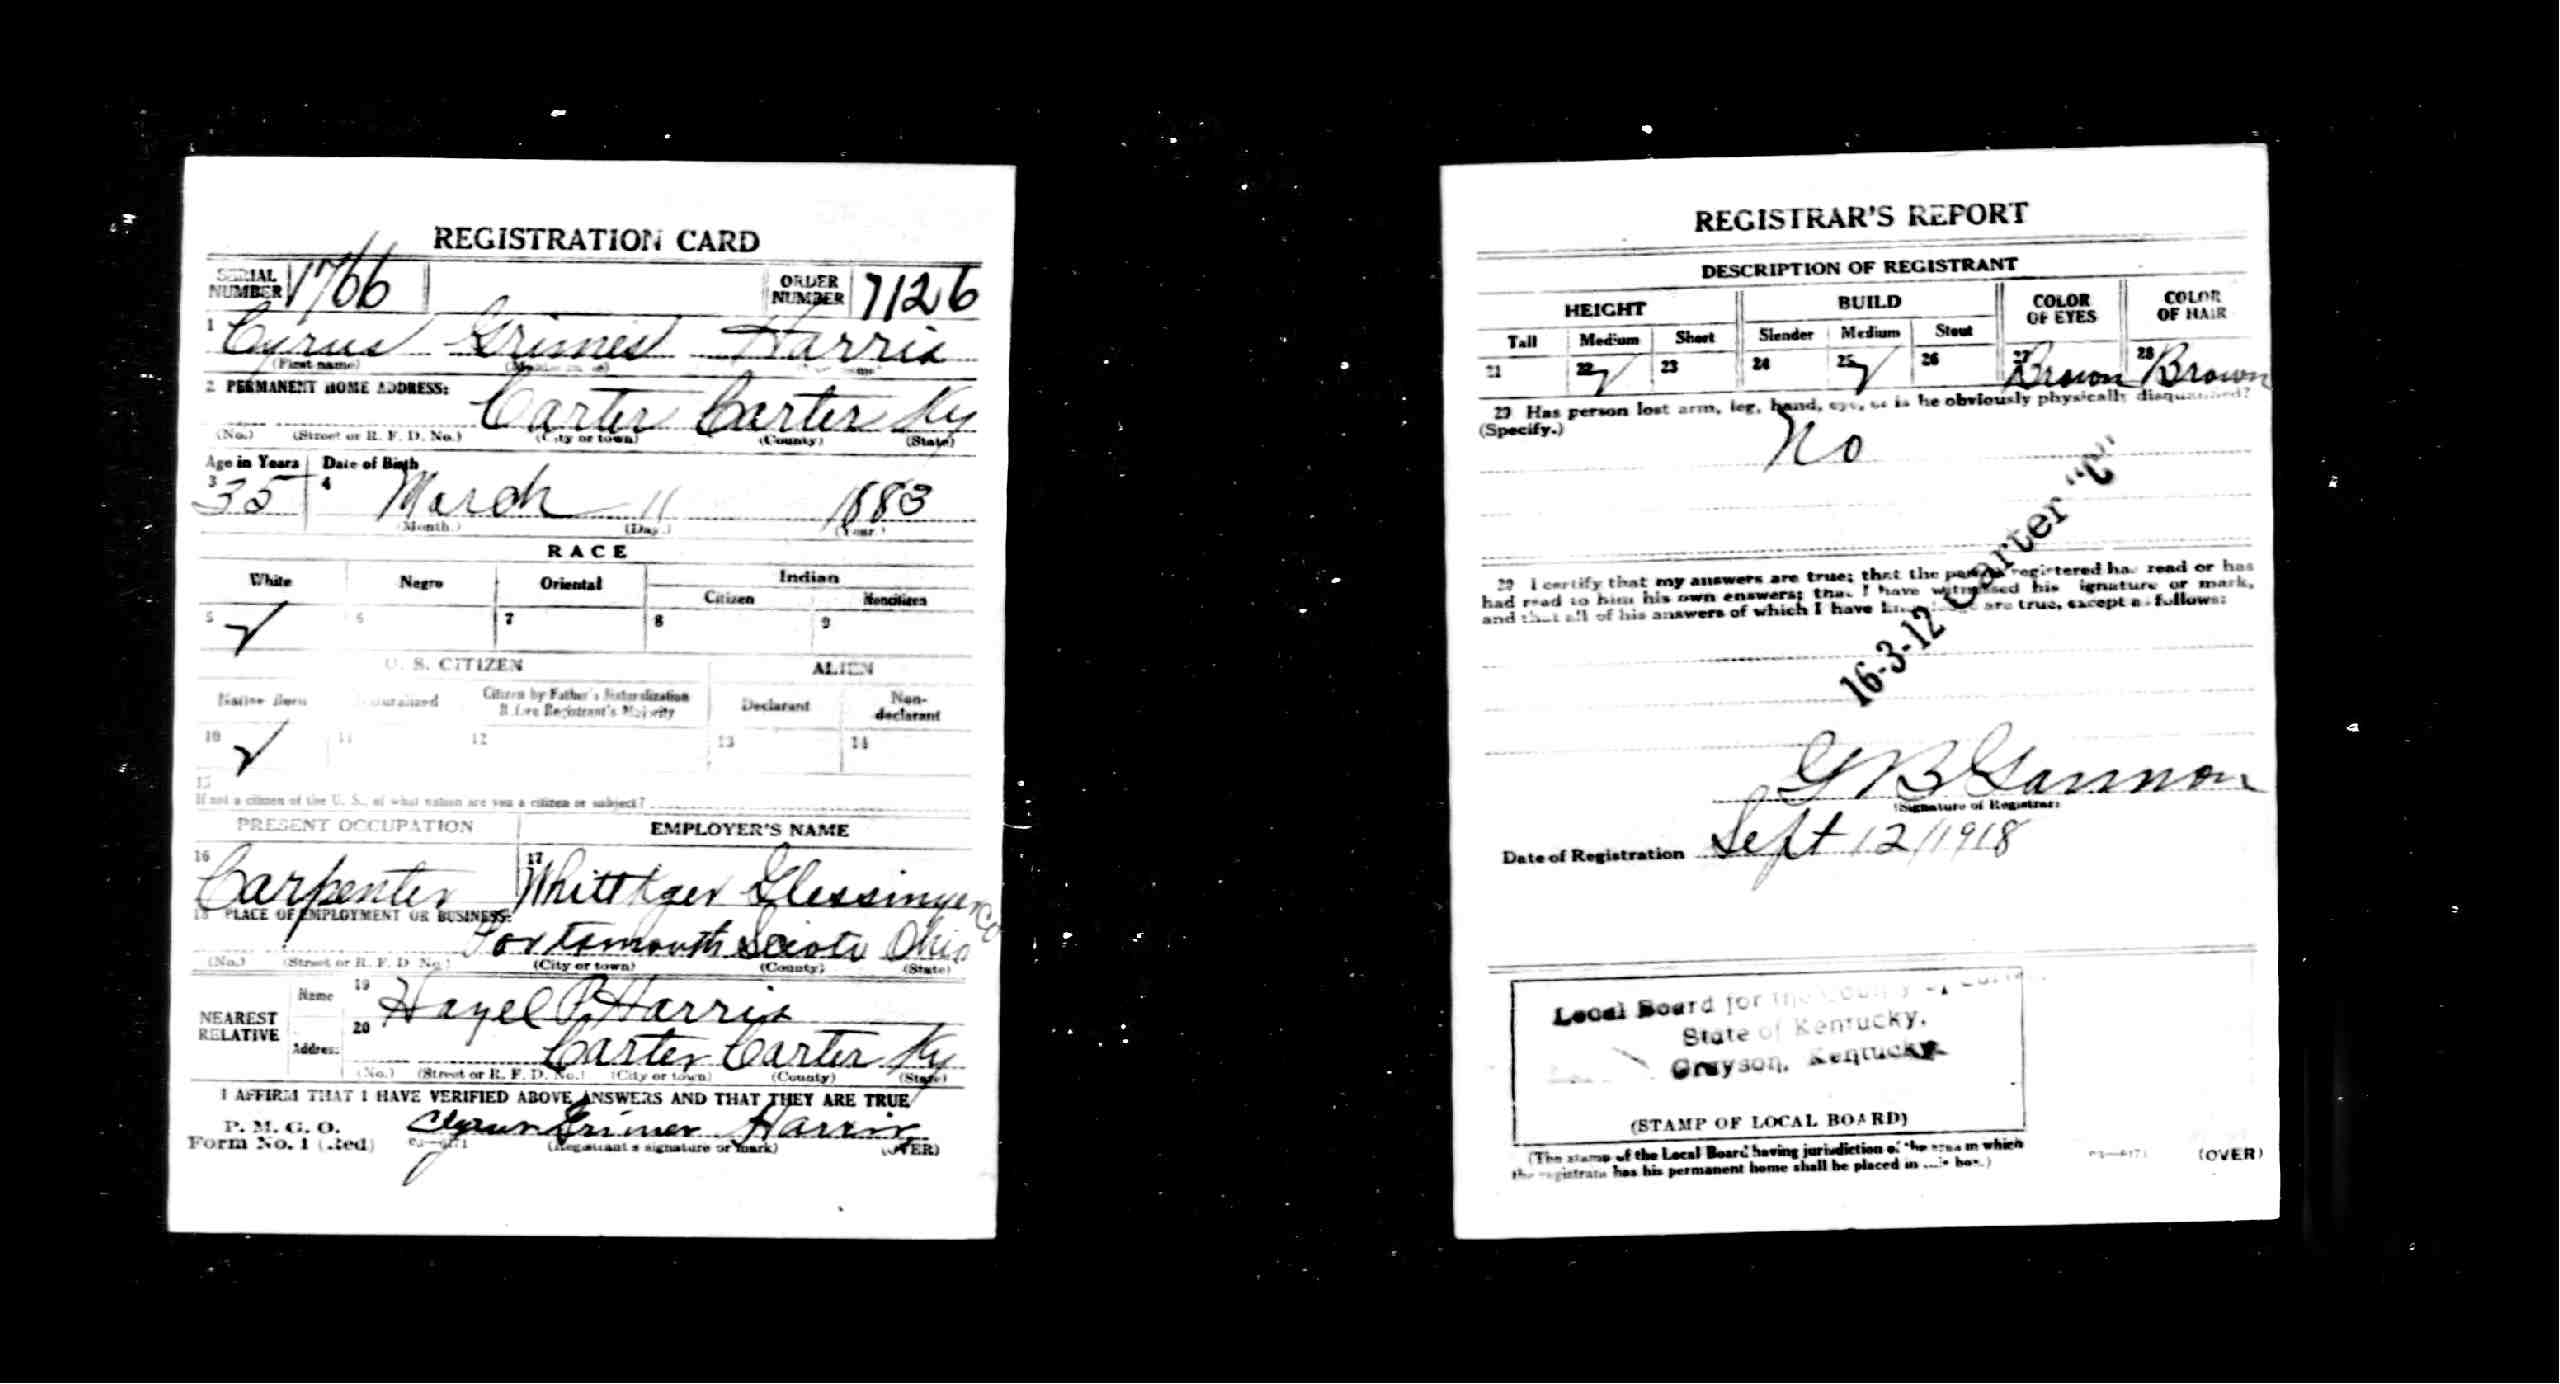 REGISTRATION CARD
SERIAL NUMBER 1766 ORDER NUMBER 7126
1 Cyrus Grimes Harris
(First name)
2 PERMANENT HOME ADDRESS:
Carter Carter Ky
(No.) (Street or R. F. D. No.) (City or town) (County) (State)
Age in Years Date of Birth
3 35 4 March 11 1883
(Month.) (Day.) (Year.)
RACE
White Negro Oriental Indian
Citizen Noncitizen
5 ✓ 6 7 8 9
U. S. CITIZEN ALIEN
Native Born Naturalized Citizen by Father's Naturalization Before Registrant's Majority Declarant Non-declarant
10 ✓ 11 12 13 14
15
If not a citizen of the U. S., of what nation are you a citizen or subject?
PRESENT OCCUPATION EMPLOYER'S NAME
16 Carpenter 17 Whittkaer Glessinger Co
18 PLACE OF EMPLOYMENT OR BUSINESS:
Portsmouth Scioto Ohio
(No.) (Street or R. F. D. No.) (City or town) (County) (State)
NEAREST RELATIVE Name 19 Hazel P. Harris
Address 20 Carter Carter Ky
(No.) (Street or R. F. D. No.) (City or town) (County) (State)
I AFFIRM THAT I HAVE VERIFIED ABOVE ANSWERS AND THAT THEY ARE TRUE
P. M. G. O.
Form No. 1 (Red) Cyrus Grimes Harris
(Registrant's signature or mark) (OVER)
REGISTRAR'S REPORT
DESCRIPTION OF REGISTRANT
HEIGHT BUILD COLOR OF EYES COLOR OF HAIR
Tall Medium Short Slender Medium Stout
21 22 ✓ 23 24 25 ✓ 26 27 Brown 28 Brown
29 Has person lost arm, leg, hand, eye, or is he obviously physically disqualified?
(Specify.) No
16-3-12 Carter "C"
30 I certify that my answers are true; that the person registered has read or has
had read to him his own answers; that I have witnessed his signature or mark,
and that all of his answers of which I have knowledge are true, except as follows:
G B Gannon
(Signature of Registrar)
Date of Registration Sept 12/1918
Local Board for the County of Carter
State of Kentucky,
Grayson, Kentucky
(STAMP OF LOCAL BOARD)
(The stamp of the Local Board having jurisdiction of the area in which
the registrant has his permanent home shall be placed in this box.)
(OVER)